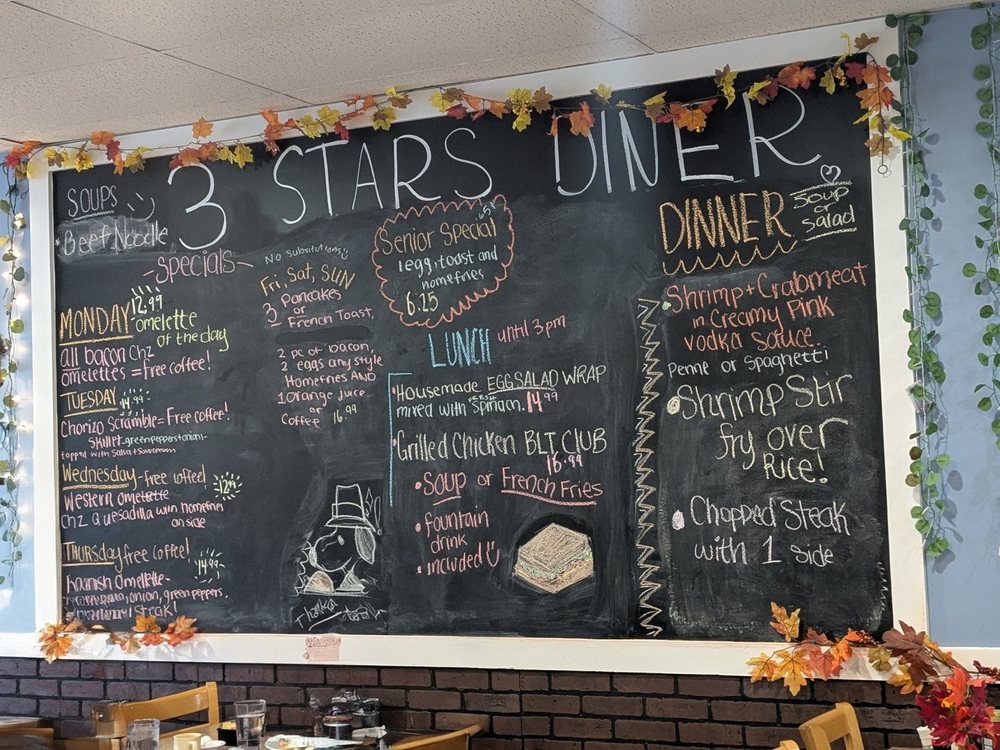 3 STARS DINER
SOUPS
* Beef Noodle
-Specials-
MONDAY 12.99
omelette
of the day
all bacon chz
omelettes = Free coffee!
TUESDAY 14.99
Chorizo Scramble = Free coffee!
Skillet-greenpeppers+onions-
topped with salsa+sourcream
Wednesday - free coffee!
Western omelette 12.99
chz Quesadilla with homefries
on side
Thursday free coffee!
14.99
omelette-
onion, green peppers,
steak!
No Substitutions
Fri, Sat, SUN
3 Pancakes
or
French Toast,
2 pc of bacon,
2 eggs any style
Homefries AND
1 orange juice
or
coffee 16.99
Thanks
65+
Senior Special
1 egg, toast and
homefries
6.25
LUNCH until 3pm
• Housemade EGG SALAD WRAP
fresh
mixed with Spinach. 14.99
• Grilled Chicken BLT CLUB
16.99
• Soup or French Fries
• fountain
drink
• included
DINNER
Soup
or
Salad
• Shrimp + Crabmeat
in Creamy Pink
vodka Sauce..
Penne or Spaghetti
• Shrimp Stir
fry over
Rice!
• Chopped Steak
with 1 side